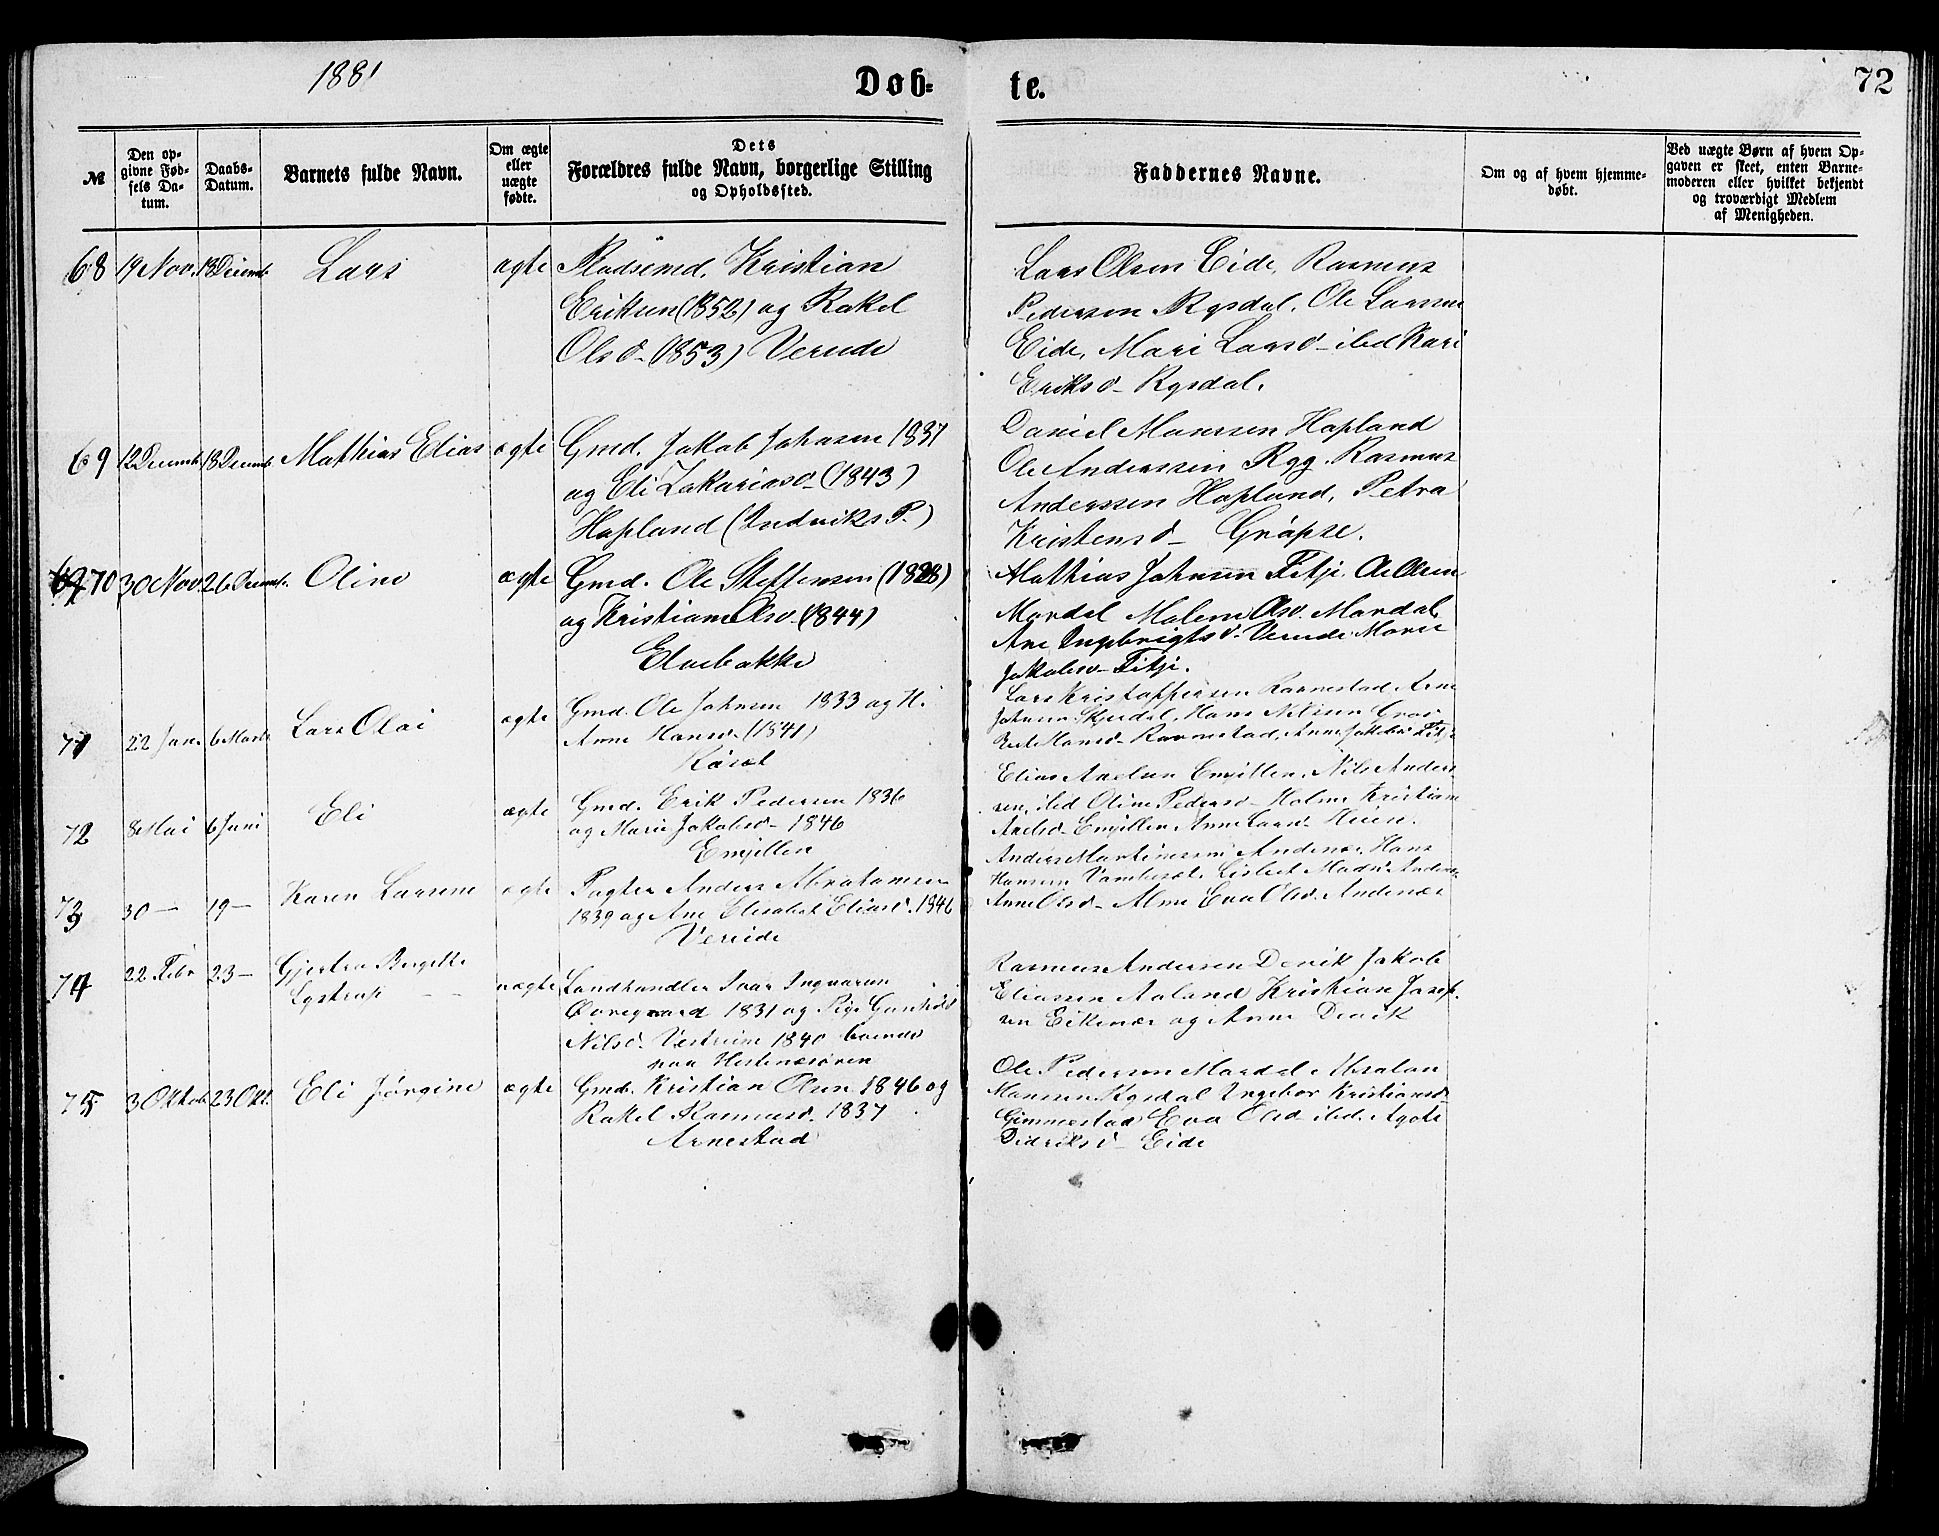 1881
Døb-
te.
72
№
Den op-
givne Fød-
sels Da-
tum.
Daabs-
Datum.
Barnets fulde Navn.
Om ægte
eller
uægte
fødte.
Dets
Forældres fulde Navn, borgerlige Stilling
og Opholdssted.
Faddernes Navne.
Om og af hvem hjemme-
døbt.
Ved uægte Børn af hvem Op-
gaven er skeet, enten Barne-
moderen eller hvilket bekjendt
og troværdigt Medlem
af Menigheden.
68 19 Nov. 18 Decemb Lars ægte Pladsmd. Kristian
Eriksen (1852) og Rakel
Olsd. (1853) Vereide
Lars Olsen Eide, Rasmus
Pedersen Rysdal, Ole Larsen
Eide, Mari Larsd. ibd Kari
Eriksd. Rysdal.
69 12 Decemb. 18 Decemb Mathias Elias ægte Gmd. Jakob Johnsen 1837
og Eli Zakariasd. (1843)
Hopland (Indviks P.)
Daniel Monssen Hopland
Ole Anderssen Rygg. Rasmus
Anderssen Hopland, Petra
Kristensd.
70 30 Nov. 26 Decemb. Oline ægte Gmd. Ole Steffensen (1828)
og Kristiane Olsd. (1844)
Elvebakke
Mathias Johnsen Fitje. Ole Olsen
Mardal Malene Olsd. Mardal,
Ane Ingebrigtsd. Vereide Marie
Jakobsd. Fitje.
71 22 Jan. 6 Marts Lars Olai ægte Gmd. Ole Johnsen 1833 og H.
Anne Hansd. (1841)
Lars Kristoffersen Ravnestad Arne
Johnsen Hans Nilsen
Hansd. Ravnestad, Anne Jakobsd. Fitje
72 8 Mai 6 Juni Eli ægte Gmd. Erik Pedersen 1836
og Marie Jakobsd. 1846
Emjellen
Elias Axelsen Emjellen, Nils Anders-
sen, ibd Oline Pedersd. Holme Kristiane
Axelsd. Emjellen Anne Larsd.
73 30 — 19 — Karen Larsine ægte Pagter Anders Abrahamsen
1839 og Ane Elisabet Eliasd. 1846
Vereide
Anders Martinussen Andenæs, Hans
Hansen Lisbet Madsd. Andenæs
Anne Olsd. Alme Eva Olsd. Andenæs
74 22 Febr 23 — Gjertru Birgitte
uægte Landhandler Ivar Ingvarsen
1831 og Pige Gunhild
Nilsd. 1840 boende
paa Hestenæsøren
Rasmus Andersen Devik Jakob
Eliassen Aaland Kristian Josef-
sen Eikenæs og Anne Devik
75 3 Oktob. 23 Okt. Eli Jørgine ægte Gmd. Kristian Olsen 1846 og
Rakel Rasmusd. 1837
Arnestad
Ole Pedersen Mardal Absalon
Monsen Rysdal Ingebor Kristiansd.
Gimmestad Eva Olsd ibd. Agote
Didriksd. Eide